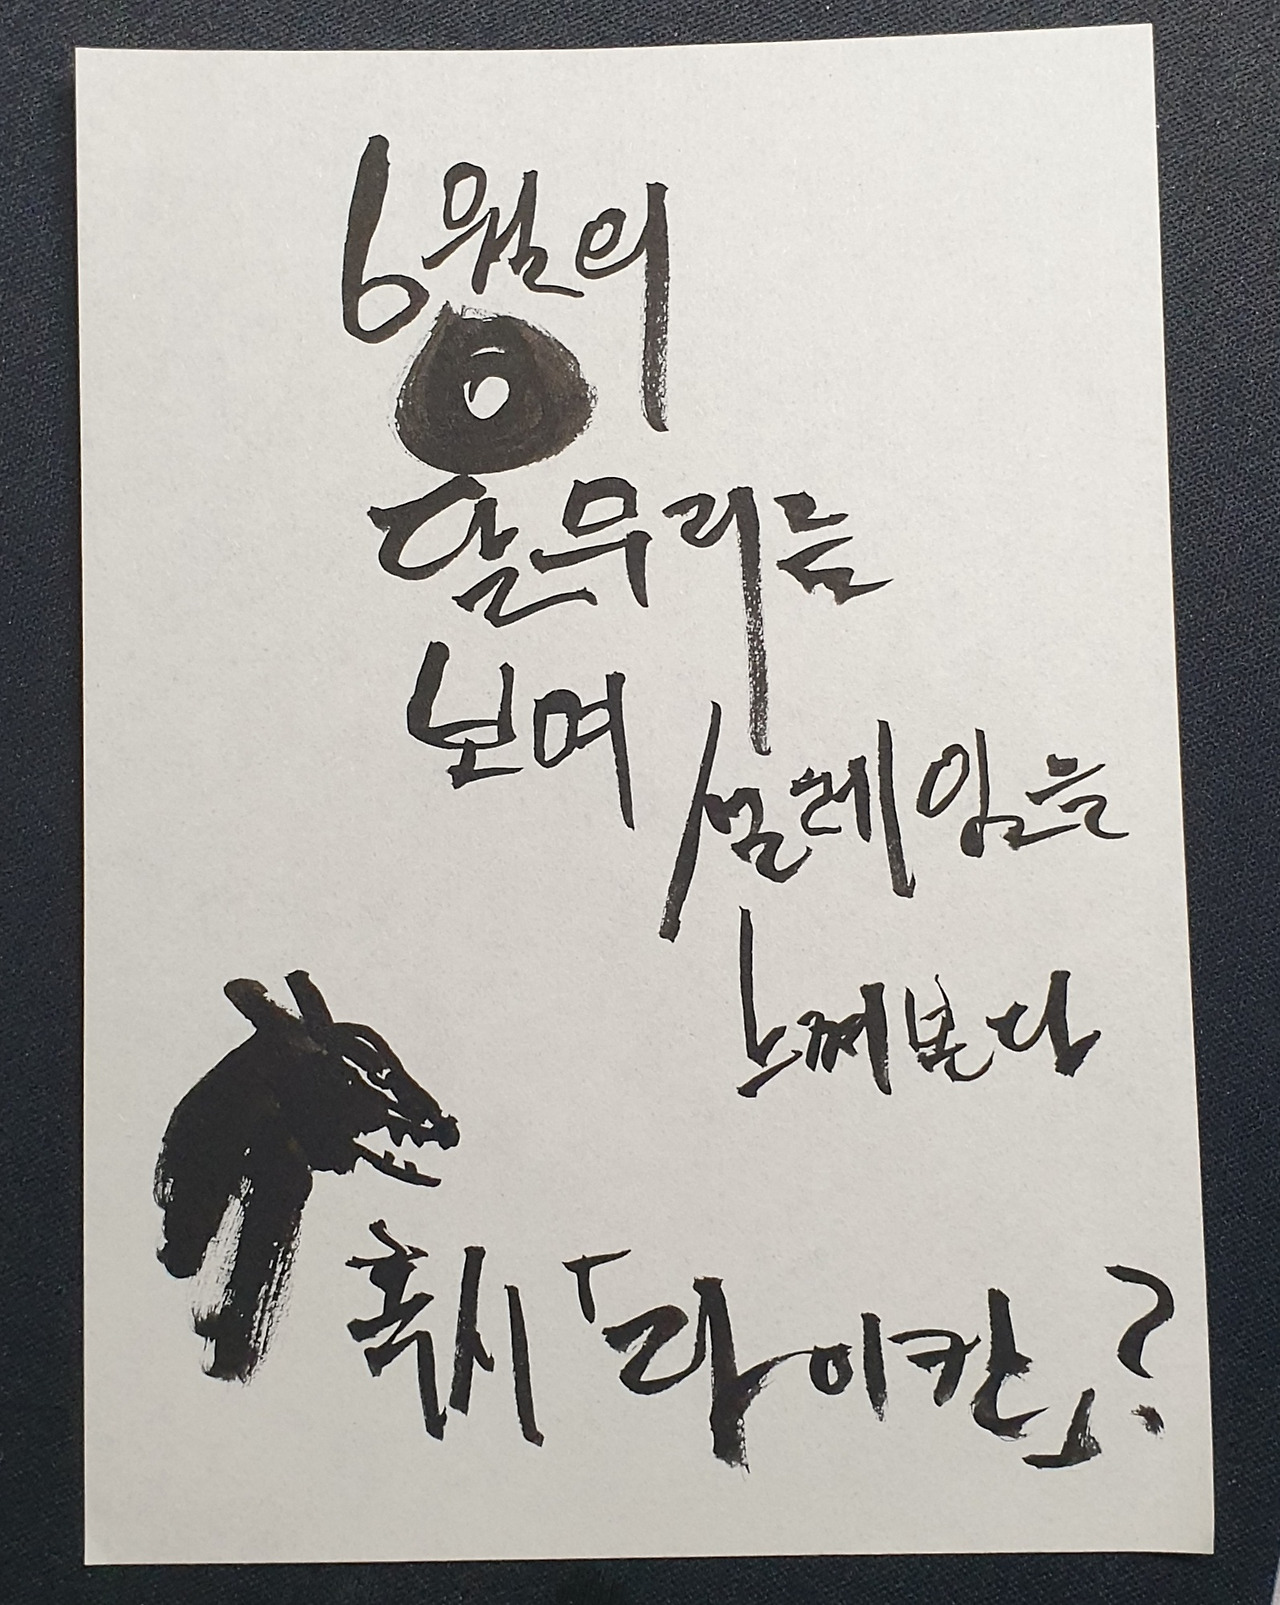 6월의
달무리를
보며 설레임을
느껴본다
혹시 「라이칸」?